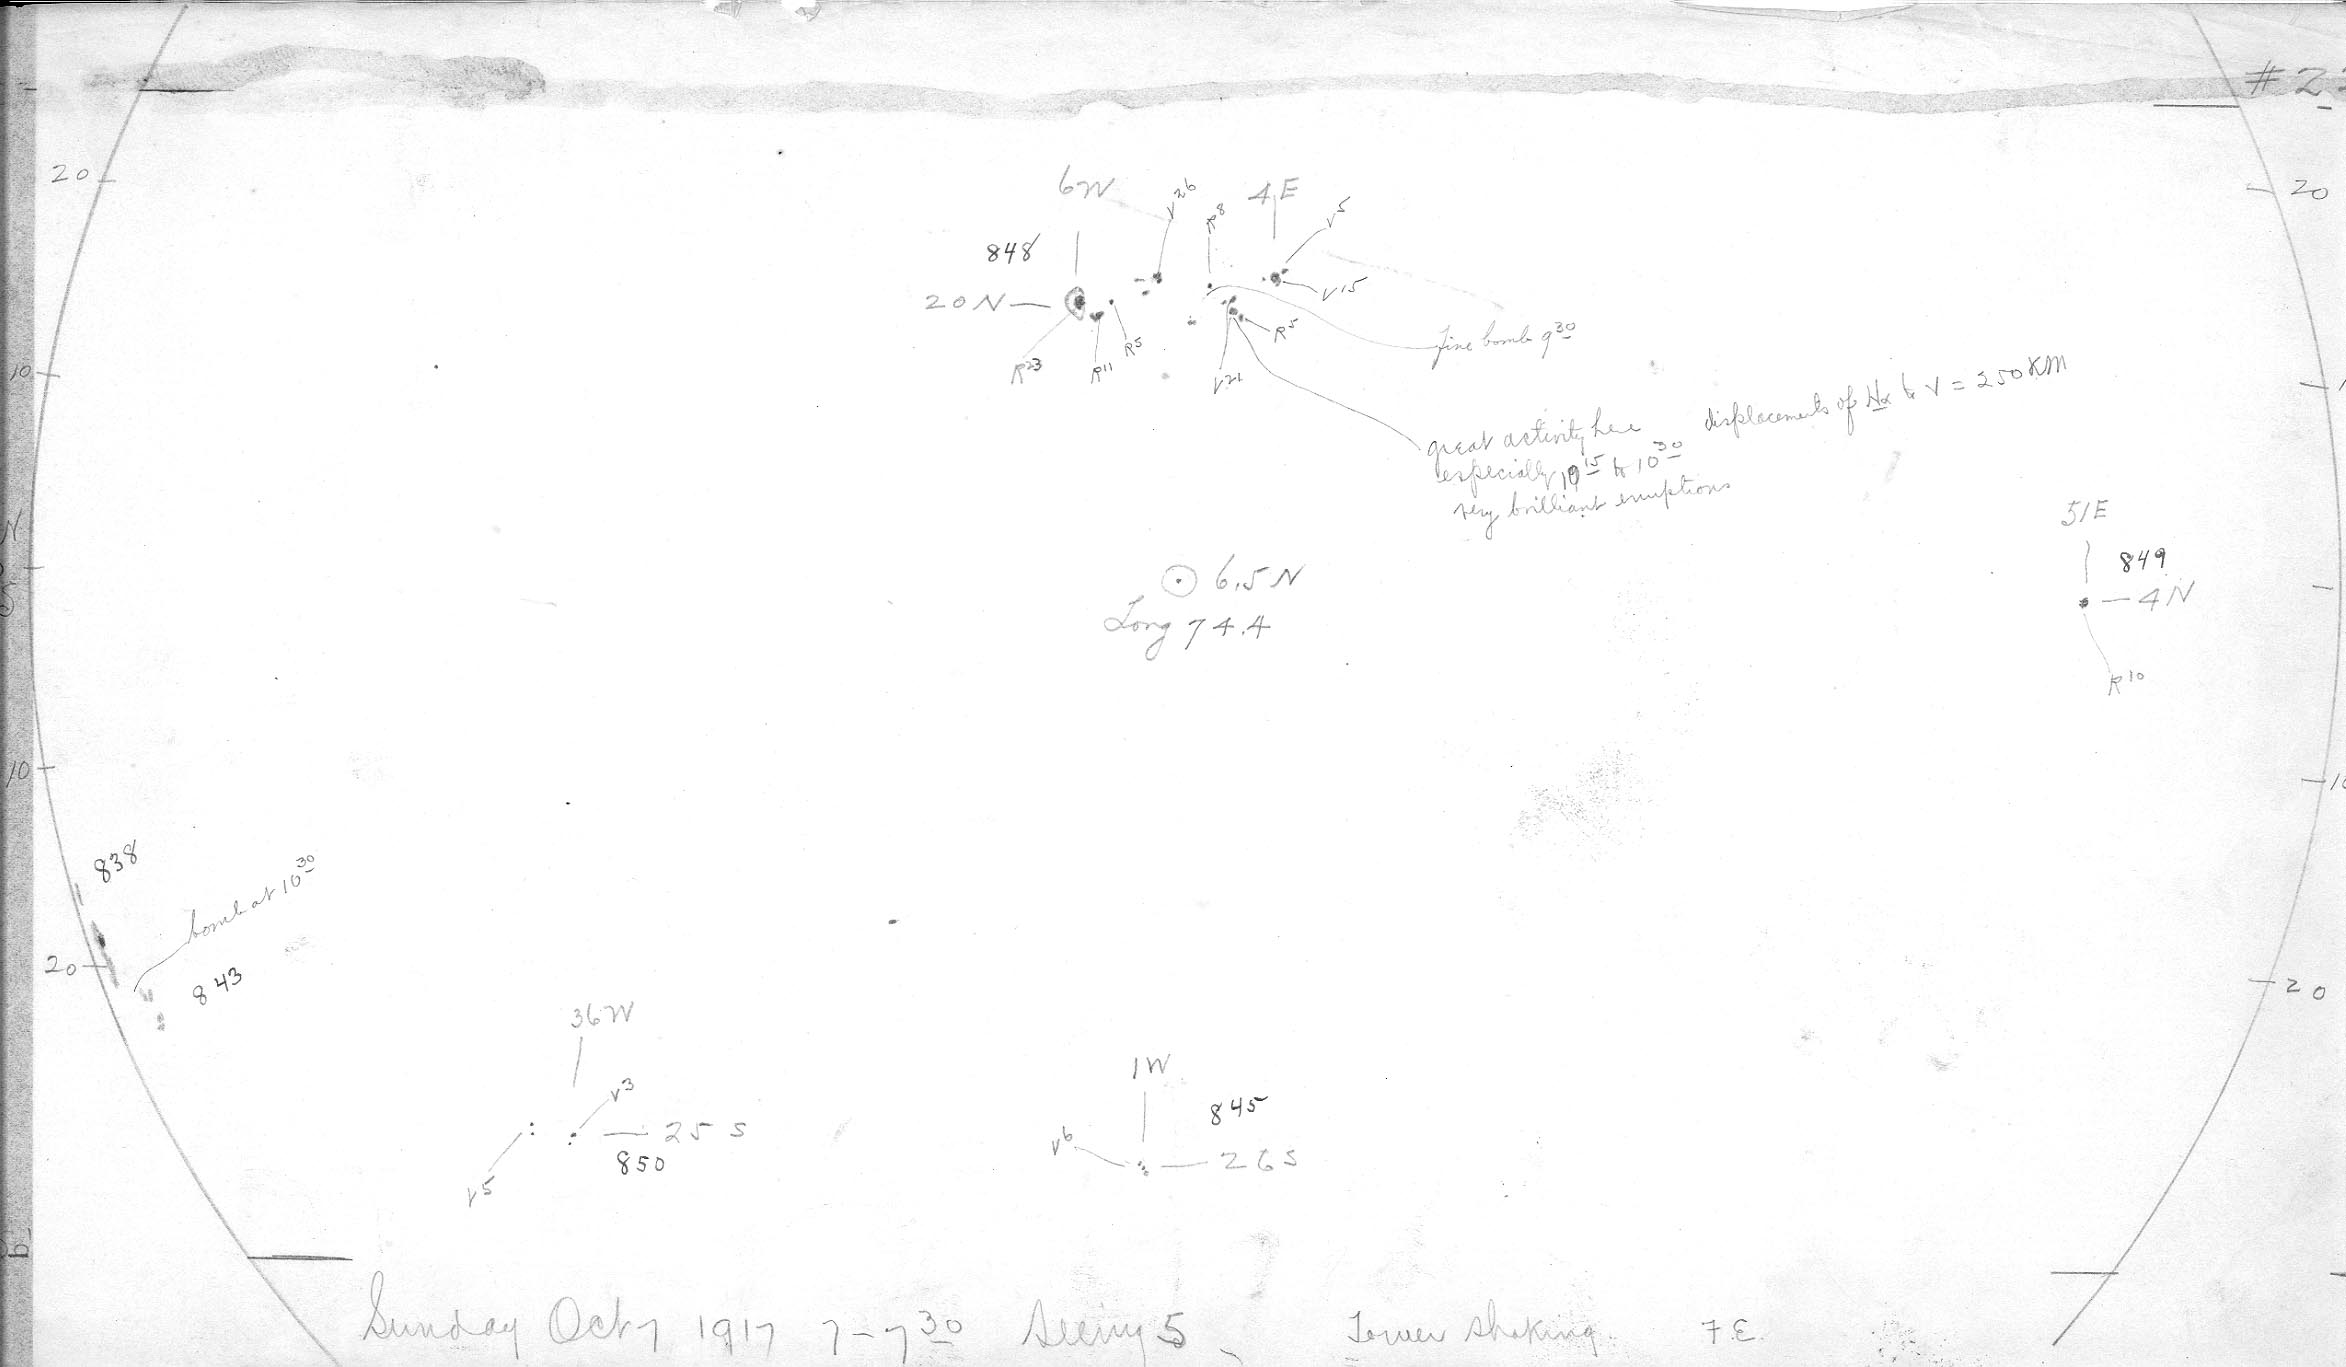 # 2
20
20
6W
V26
R8
4E
V5
848
20N
V15
R23
R11
R5
V21
R5
fine bomb 9 30
10
great activity here displacements of Hα to V = 250 KM
especially 10 15 to 10 30
very brilliant eruptions
N
S
51E
849
4N
R10
6.5 N
Long 74.4
10
10
838
bomb at 10 30
20
843
20
36W
V3
25 S
850
V5
1W
845
V6
26 S
Sunday Oct 7 1917 7-7 30 Seeing 5 Tower shaking F.E.